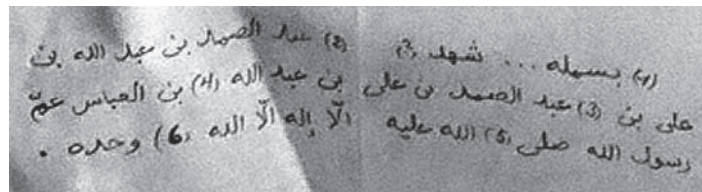 (1) بسمله ... شهد (2) (2) عبد الصمد بن عبد الله بن
على بن (3) عبد الصمد بن على بن عبد الله (4) بن العباس عمّ
رسول الله صلى (5) الله عليه الّا إله الّا الله (6) وحده .